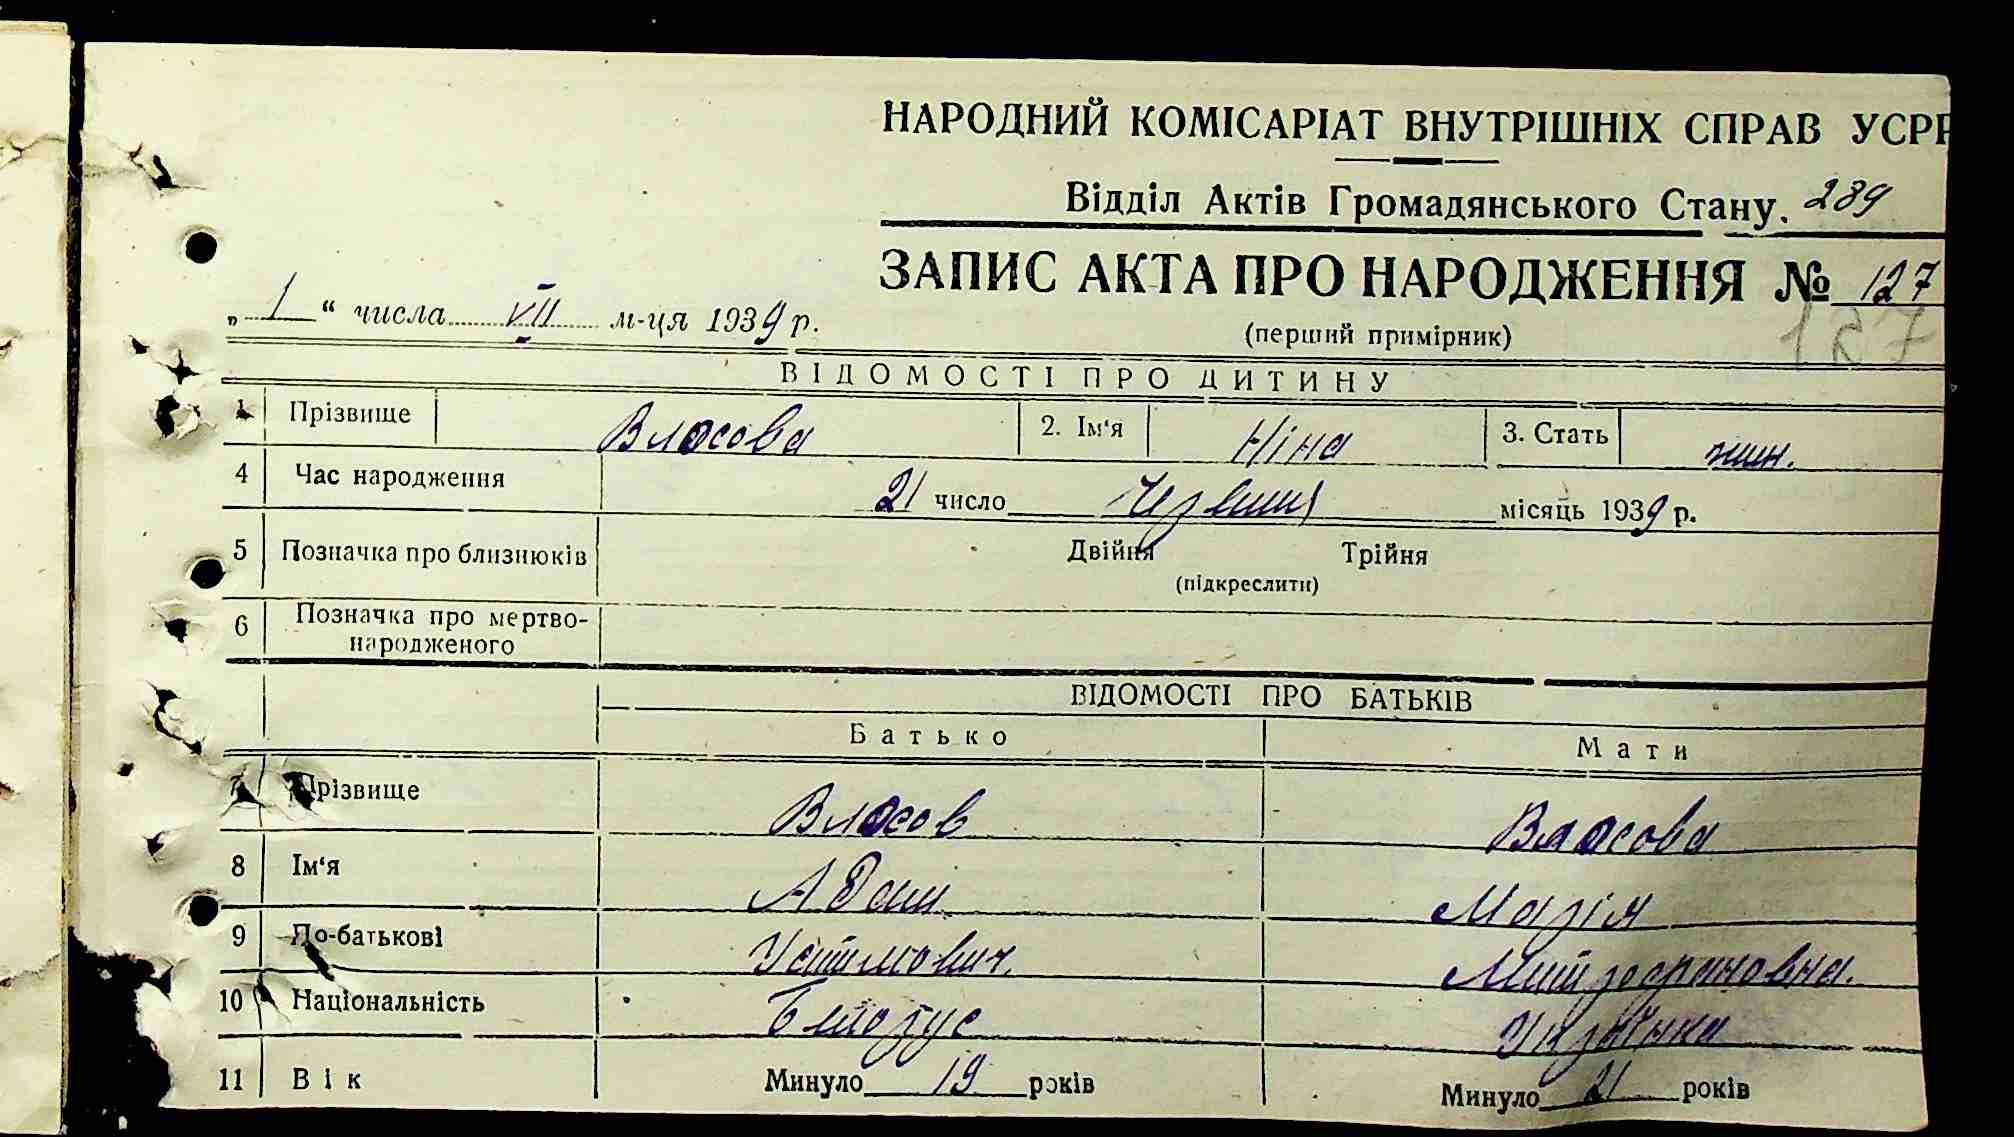 НАРОДНИЙ КОМІСАРІАТ ВНУТРІШНІХ СПРАВ УСРР
Відділ Актів Громадянського Стану. 289
ЗАПИС АКТА ПРО НАРОДЖЕННЯ № 127
„ 1 “ числа VII м-ця 1939 р.
(перший примірник)
127
ВІДОМОСТІ ПРО ДИТИНУ
1 Прізвище Власова 2. Ім'я Ніна 3. Стать жин.
4 Час народження 21 число Червня місяць 1939 р.
5 Позначка про близнюків Двійня Трійня
(підкреслити)
6 Позначка про мертво-
народженого
ВІДОМОСТІ ПРО БАТЬКІВ
Батько Мати
7 Прізвище Власов Власова
8 Ім'я Адам Марія
9 По-батькові Устимович. Митрофановна.
10 Національність Білорус Українка
11 Вік Минуло 19 років Минуло 21 років